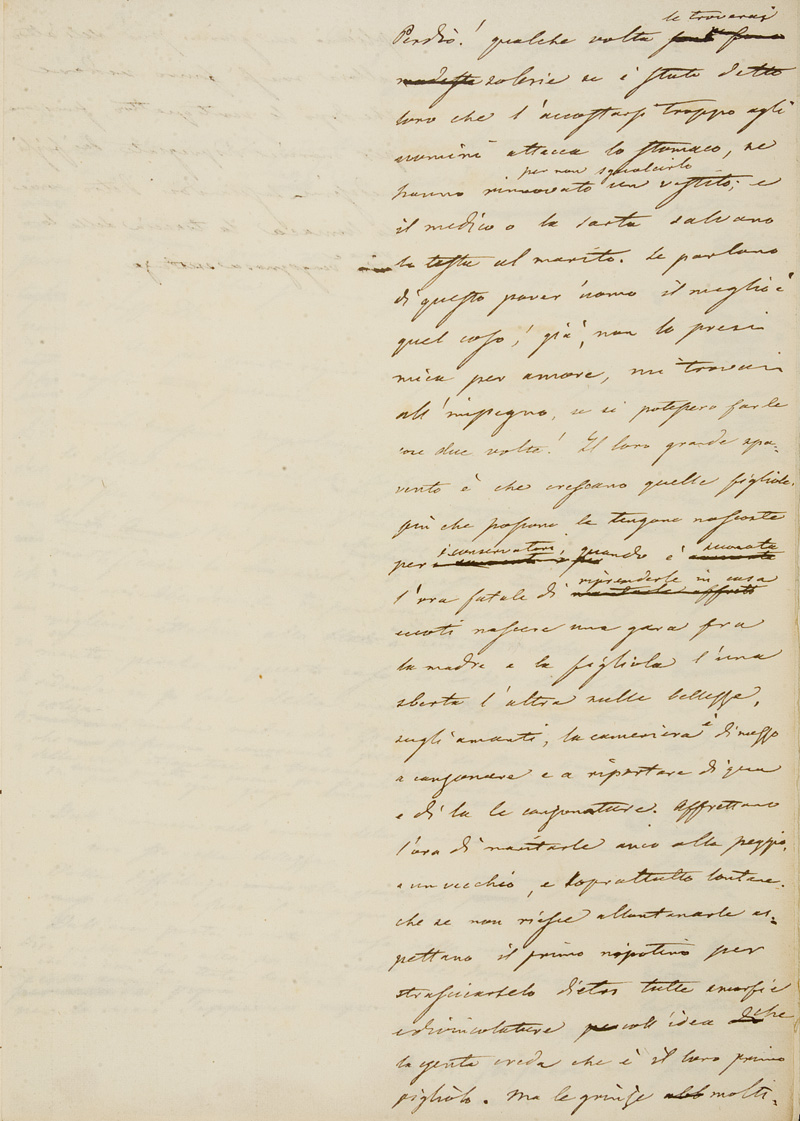 le troverai
Perdio! qualche volta
sobrie se è stato detto
loro che l'accostarsi troppo agli
uomini attacca lo stomaco, se
per non sgualcirlo
hanno rinnovato un vestito; e
il medico o la sarta salvano
la testa al marito. Se parlano
di questo pover'uomo il meglio è
quel coso! già, non lo presi
mica per amore, mi trovai
all'impegno, se si potessero far le
cose due volte! Il loro grande spa:
vento è che crescano quelle figliole.
più che possono le tengono nascoste
per i conservatori; quando è suonata
l'ora fatale di riprenderle in casa
nascere una gara fra
la madre e la figliola l'una
sberta l'altra sulle bellezze,
sugli amanti, la cameriera è di mezzo
a canzonare e a riportare di qua
e di la le canzonature. Affrettano
l'ora di maritarle anco alla peggio,
a un vecchio, e soprattutto lontane.
che se non riesce allontanarle as:
pettano il primo nipotino per
strascicarselo dietro tutte smorfie
e divincolature coll'idea che
la gente creda che è il loro primo
figliolo. Ma le grinze molti: